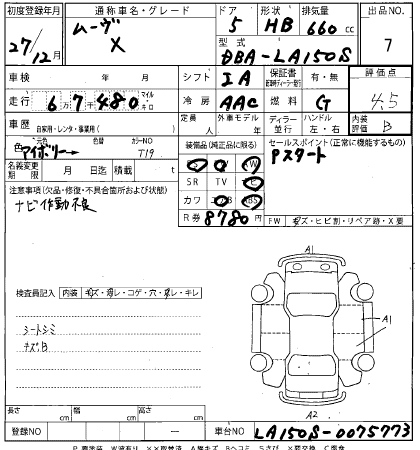 初度登録年月 通称車名・グレード ドア 形状 排気量 出品NO.
27/12月 ムーヴ X 5 HB 660cc 7
型式 DBA-LA150S
車検 年 月 シフト IA 保証書 有・無 評価点
4.5
走行 67480 マイル キロ 冷房 AAC 燃料 G
車歴 自家用・レンタ・事業用( ) 定員 人 外車モデル 年 ディーラー 並行 ハンドル 左・右 内装評価 B
色 元色 アイボリー 色替 カラーNO T19 装備品(純正品に限る) セールスポイント(正常に機能するもの)
Pスタート
名義変更期限 月 日 積載 t
SR TV ナビ
注意事項(欠品・修復・不具合箇所および状態) カワ エアB ABS
ナビ作動不良 R券 8780円
FW キズ・ヒビ割・リペア跡・X要
A1
検査員記入 内装 キズ・汚レ・コゲ・穴・キレ
A1
シートシミ
キズB
A2
長さ cm 幅 cm 高さ cm
登録NO 車台NO LA150S-0075773